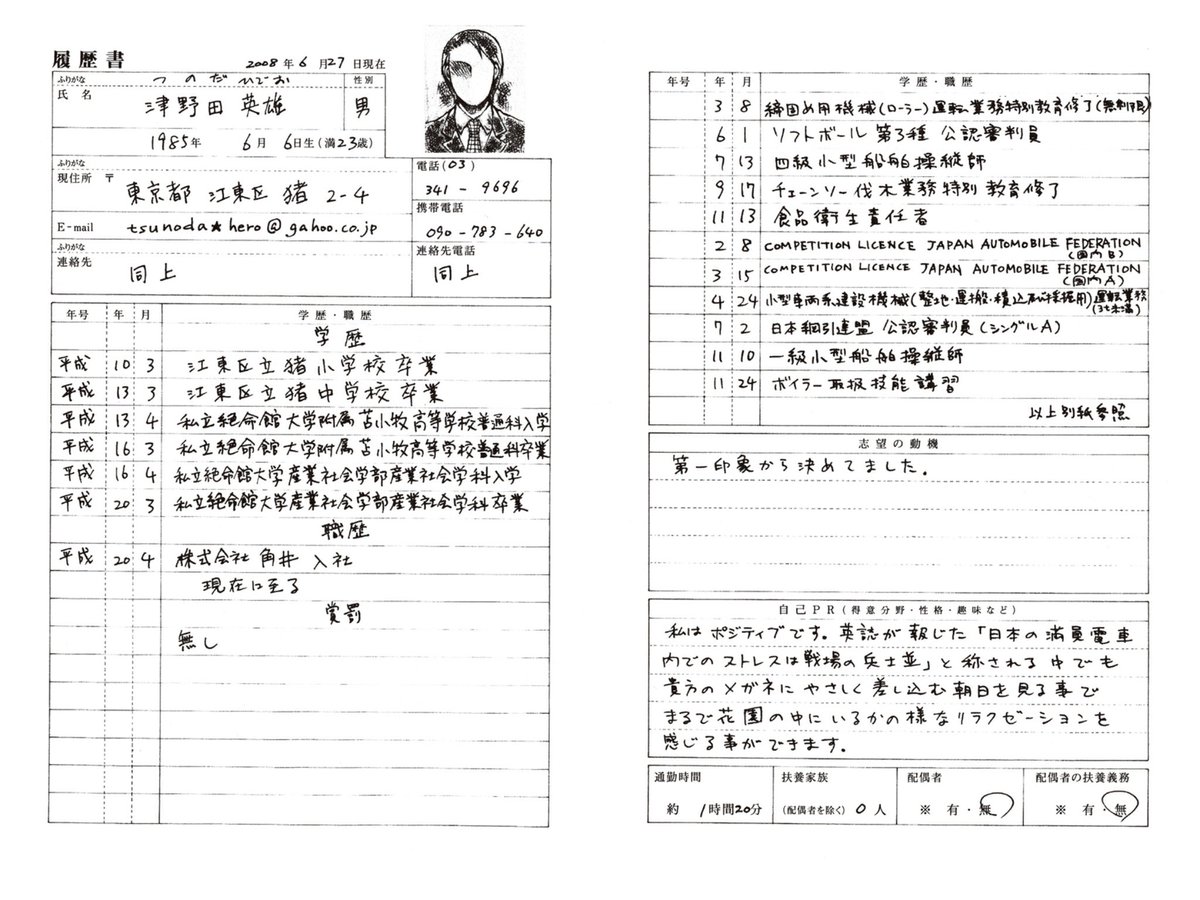 履歴書
2008年6月27日現在
ふりがな つのだ ひでお 性別
氏名 津野田 英雄 男
1985年 6月 6日生(満23歳)
ふりがな
現住所 〒
東京都 江東区 猪 2-4
電話(03)
341 - 9696
携帯電話
090 - 783 - 640
E-mail tsunoda★hero@gahoo.co.jp
ふりがな
連絡先 同上
連絡先電話
同上
年号 年 月 学歴・職歴
学歴
平成 10 3 江東区立猪小学校卒業
平成 13 3 江東区立猪中学校卒業
平成 13 4 私立絶命館大学附属苫小牧高等学校普通科入学
平成 16 3 私立絶命館大学附属苫小牧高等学校普通科卒業
平成 16 4 私立絶命館大学産業社会学部産業社会学科入学
平成 20 3 私立絶命館大学産業社会学部産業社会学科卒業
職歴
平成 20 4 株式会社 角井 入社
現在に至る
賞罰
無し
年号 年 月 学歴・職歴
3 8 締固め用機械(ローラー)運転業務特別教育修了(無制限)
6 1 ソフトボール 第3種 公認審判員
7 13 四級小型船舶操縦師
9 17 チェーンソー伐木業務特別教育修了
11 13 食品衛生責任者
2 8 COMPETITION LICENCE JAPAN AUTOMOBILE FEDERATION
(国内B)
3 15 COMPETITION LICENCE JAPAN AUTOMOBILE FEDERATION
(国内A)
4 24 小型車両系建設機械(整地・運搬・積込及び掘削用)運転業務
(3t未満)
7 2 日本綱引連盟 公認審判員(シングルA)
11 10 一級小型船舶操縦師
11 24 ボイラー取扱技能講習
以上別紙参照
志望の動機
第一印象から決めてました。
自己PR(得意分野・性格・趣味など)
私はポジティブです。英誌が報じた「日本の満員電車
内でのストレスは戦場の兵士並」と称される中でも
貴方のメガネにやさしく差し込む朝日を見る事で
まるで花園の中にいるかの様なリラクゼーションを
感じる事ができます。
通勤時間 扶養家族 配偶者 配偶者の扶養義務
約 1時間20分 (配偶者を除く) 0人 ※ 有・無 ※ 有・無